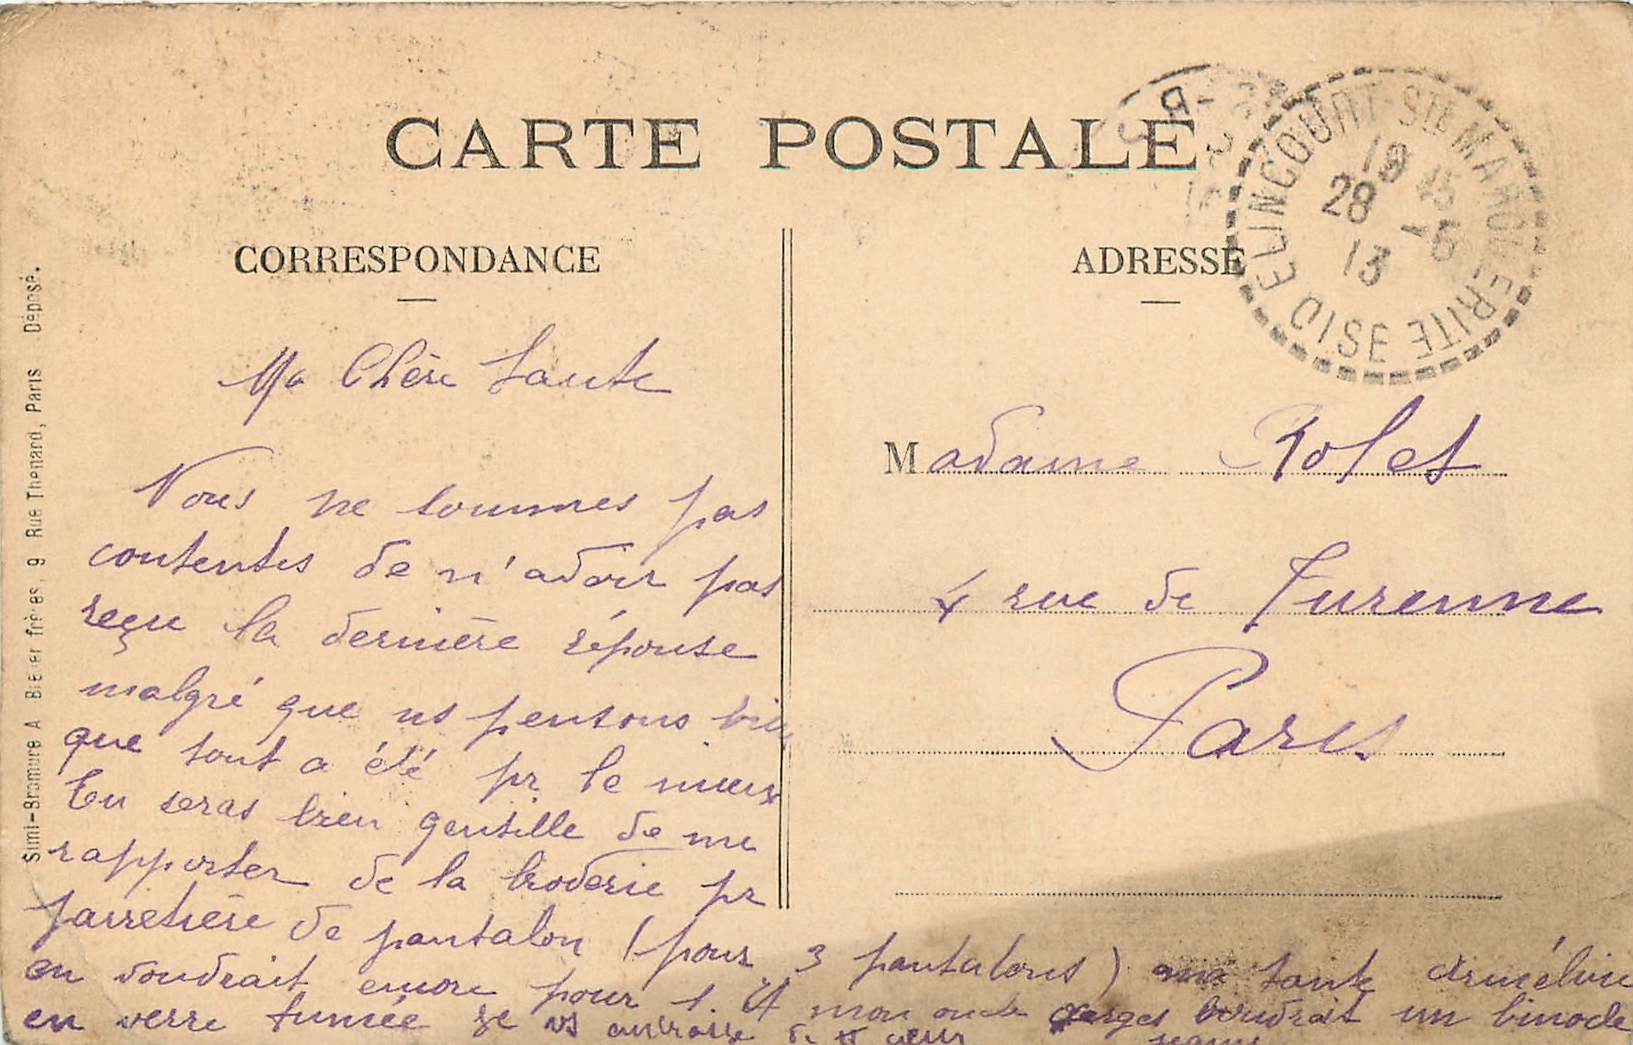 CARTE POSTALE
CORRESPONDANCE
ADRESSE
ELINCOURT-STE MARGUERITE
OISE
28 -5
13
Simi-Bromure A Breger frères, 9 Rue Thenard, Paris Déposé.
Ma Chère Tante
Nous ne sommes pas
contentes de n'avoir pas
reçu la dernière réponse
malgré que ns pensons bien
que tout a été pr le mieux
Tu seras bien gentille de me
rapporter de la broderie pr
jarretière de pantalon (pour 3 pantalons) ma tante Arméline
en voudrait encore pour 1. Et mon oncle Georges voudrait un binocle
en verre fumée je vs embrasse de tt cœur
Madame Rolet
4 rue de Turenne
Paris